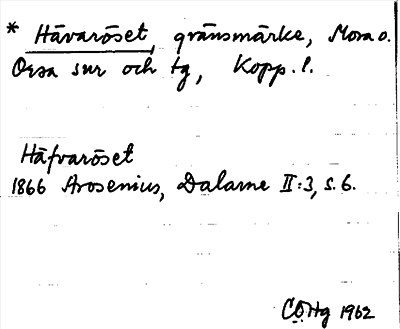 * Hävaröset, gränsmärke, Mora o.
Orsa snr och tg, Kopp. l.
Häfvaröset
1866 Arosenius, Dalarne II:3, s. 6.
1962